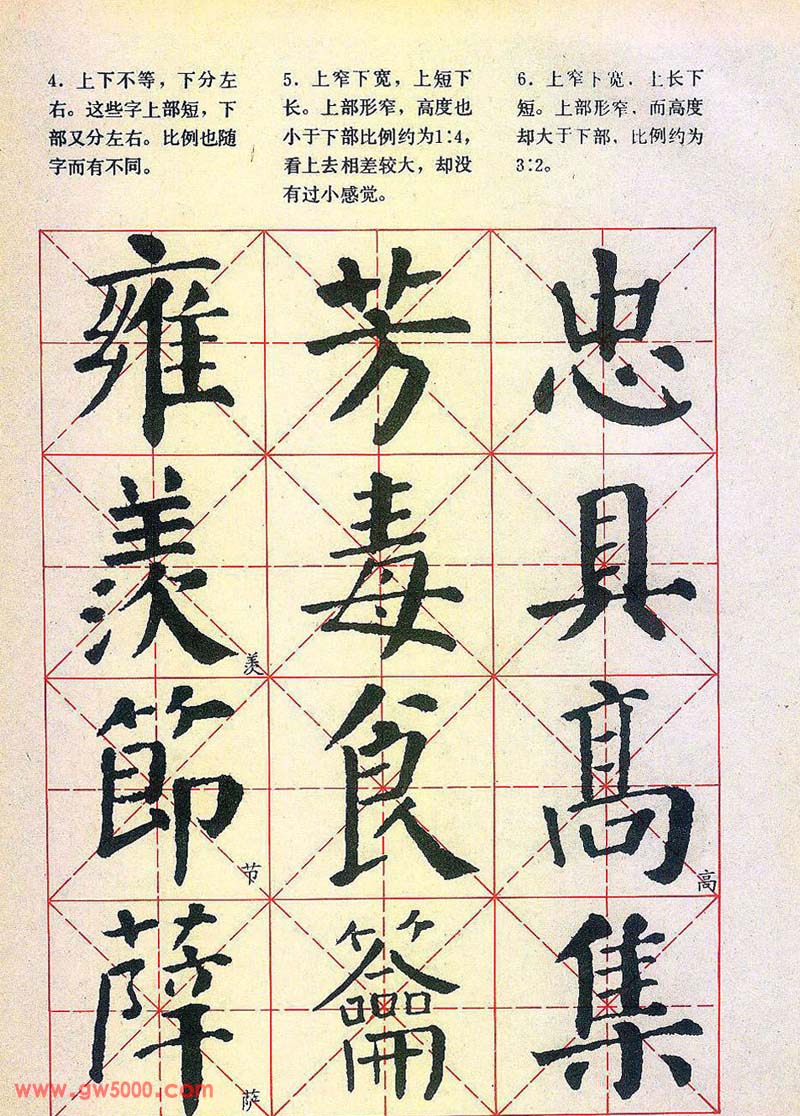 4. 上下不等，下分左
右。这些字上部短，下
部又分左右。比例也随
字而有不同。
5. 上窄下宽，上短下
长。上部形窄，高度也
小于下部比例约为1:4，
看上去相差较大，却没
有过小感觉。
6. 上窄下宽，上长下
短。上部形窄，而高度
却大于下部，比例约为
3:2。
雍 芳 忠
羨 毒 具
羡
節 食 髙
节 高
薩 籥 集
萨
www.gw5000.com